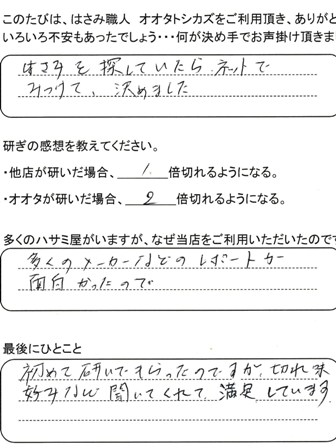 このたびは、はさみ職人 オオタトシカズをご利用頂き、ありがと
いろいろ不安もあったでしょう・・・何が決め手でお声掛け頂きま
はさみを探していたらネットで
みつけて、決めました
研ぎの感想を教えてください。
・他店が研いだ場合、1. 倍切れるようになる。
・オオタが研いだ場合、2 倍切れるようになる。
多くのハサミ屋がいますが、なぜ当店をご利用いただいたので
多くのメーカーなどのレポートが
面白かったので
最後にひとこと
初めて研いでもらったのですが、切れ味
好みなど聞いてくれて、満足しています